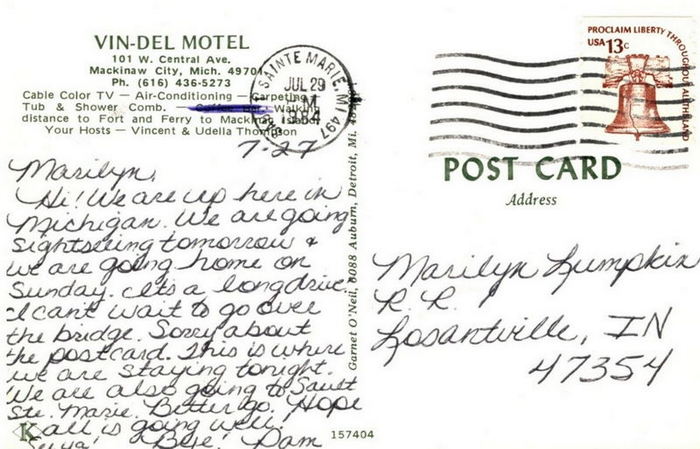 VIN-DEL MOTEL
101 W. Central Ave.
Mackinaw City, Mich. 49701
Ph. (616) 436-5273
Cable Color TV — Air-Conditioning — Carpeting
Tub & Shower Comb. — Walking
distance to Fort and Ferry to Mackinac Island
Your Hosts — Vincent & Udella Thompson
SAINTE MARIE, MI 497
JUL 29
PM
1984
PROCLAIM LIBERTY THROUGHOUT
USA 13c
POST CARD
Address
7-27
Marilyn,
Hi! We are up here in
Michigan. We are going
sightseeing tomorrow &
we are going home on
Sunday. Its a long drive.
I cant wait to go over
the bridge. Sorry about
the postcard. This is where
we are staying tonight.
We are also going to Sault
Ste. Marie. Better go. Hope
all is going well.
Bye! Pam
Garnet O'Neil, 6088 Auburn, Detroit, Mi.
Marilyn Lumpkin
R.R.
Losantville, IN
47354
K
157404